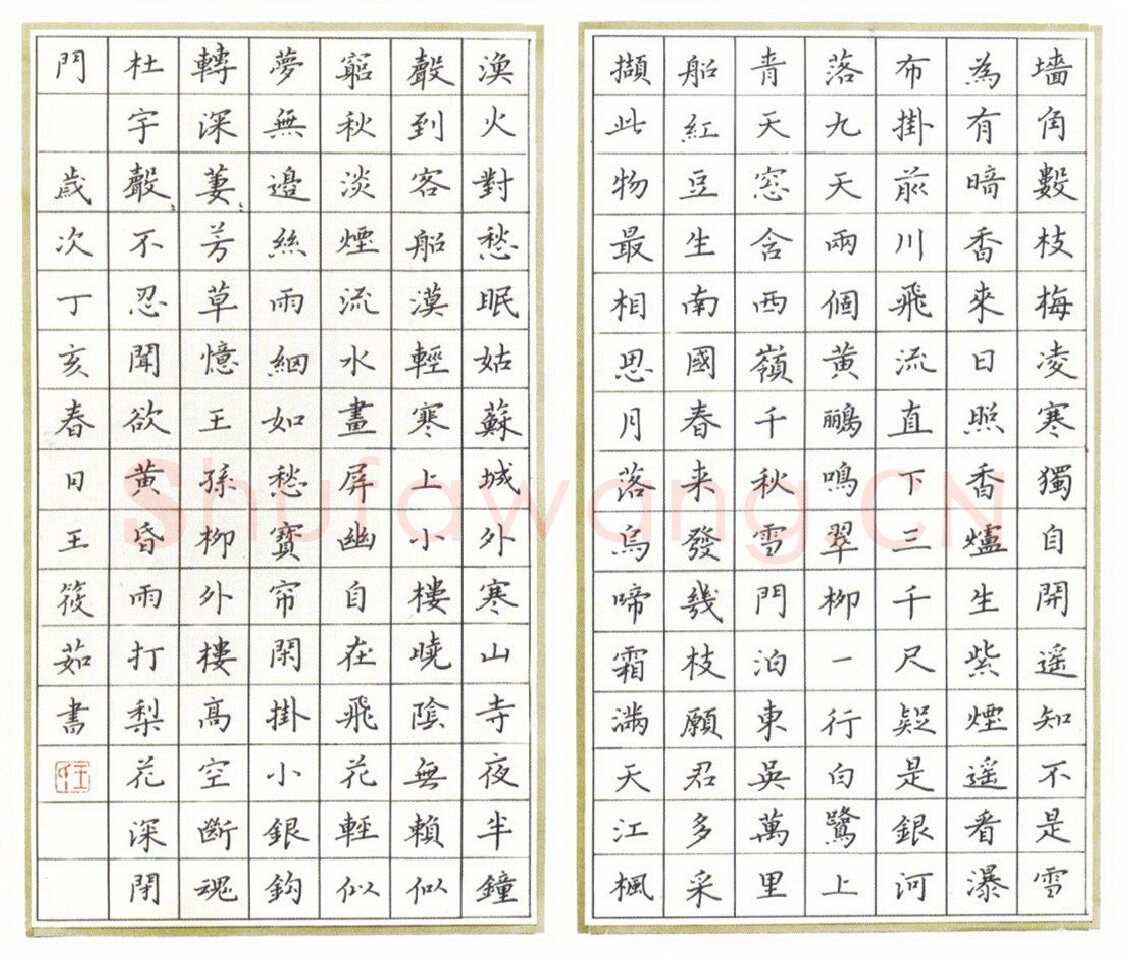 墻角數枝梅凌寒獨自開遥知不是雪
為有暗香來日照香爐生紫煙遥看瀑
布掛前川飛流直下三千尺疑是銀河
落九天兩個黄鸝鳴翠柳一行白鷺上
青天窓含西嶺千秋雪門泊東吳萬里
船紅豆生南國春来發幾枝願君多采
擷此物最相思月落烏啼霜滿天江楓
漁火對愁眠姑蘇城外寒山寺夜半鐘
聲到客船漠輕寒上小樓曉陰無賴似
窮秋淡煙流水畫屏幽自在飛花輕似
夢無邊絲雨細如愁寶帘閑掛小銀鈎
轉深萋芳草憶王孫柳外樓高空斷魂
杜宇聲不忍聞欲黄昏雨打梨花深閉
門 歲次丁亥春日王筱茹書
Shufawang.CN